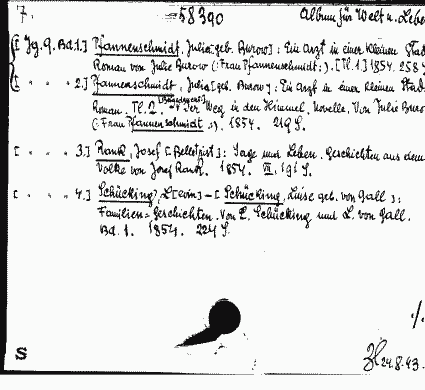 7. 58390 Album für Welt u. Lebe
[Jg. 9. Bd. 1.] Pfannenschmidt, Julia [geb. Burow]: Ein Arzt in einer kleinen Stad
Roman von Julie Burow (: Frau Pfannenschmidt :). [Tl. 1.] 1854. 258 S
[" " " 2.] Pfannenschmidt, Julia [geb. Burow]: Ein Arzt in einer kleinen Stad
Roman. Tl. 2. Der Weg in den Himmel. Novelle. Von Julie Buro
(: Frau Pfannenschmidt :). 1854. 219 S.
[" " " 3.] Rank, Josef [Belletrist]: Sage und Leben. Geschichten aus dem
Volke von Josef Rank. 1854. III, 191 S.
[" " " 4.] Schücking, L[evin] - [Schücking, Luise geb. von Gall]:
Familien-Geschichten. Von L. Schücking und L. von Gall.
Bd. 1. 1854. 224 S.
./.
S 24.8.43.